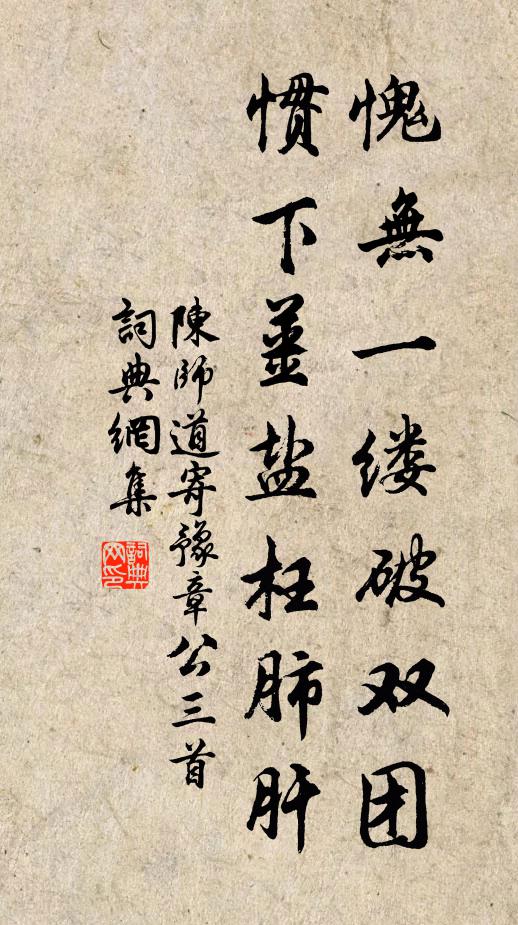 愧無一缕破双团
惯下薑盐枉肺肝
陳師道寄豫章公三首
詞典網集
詞典网印